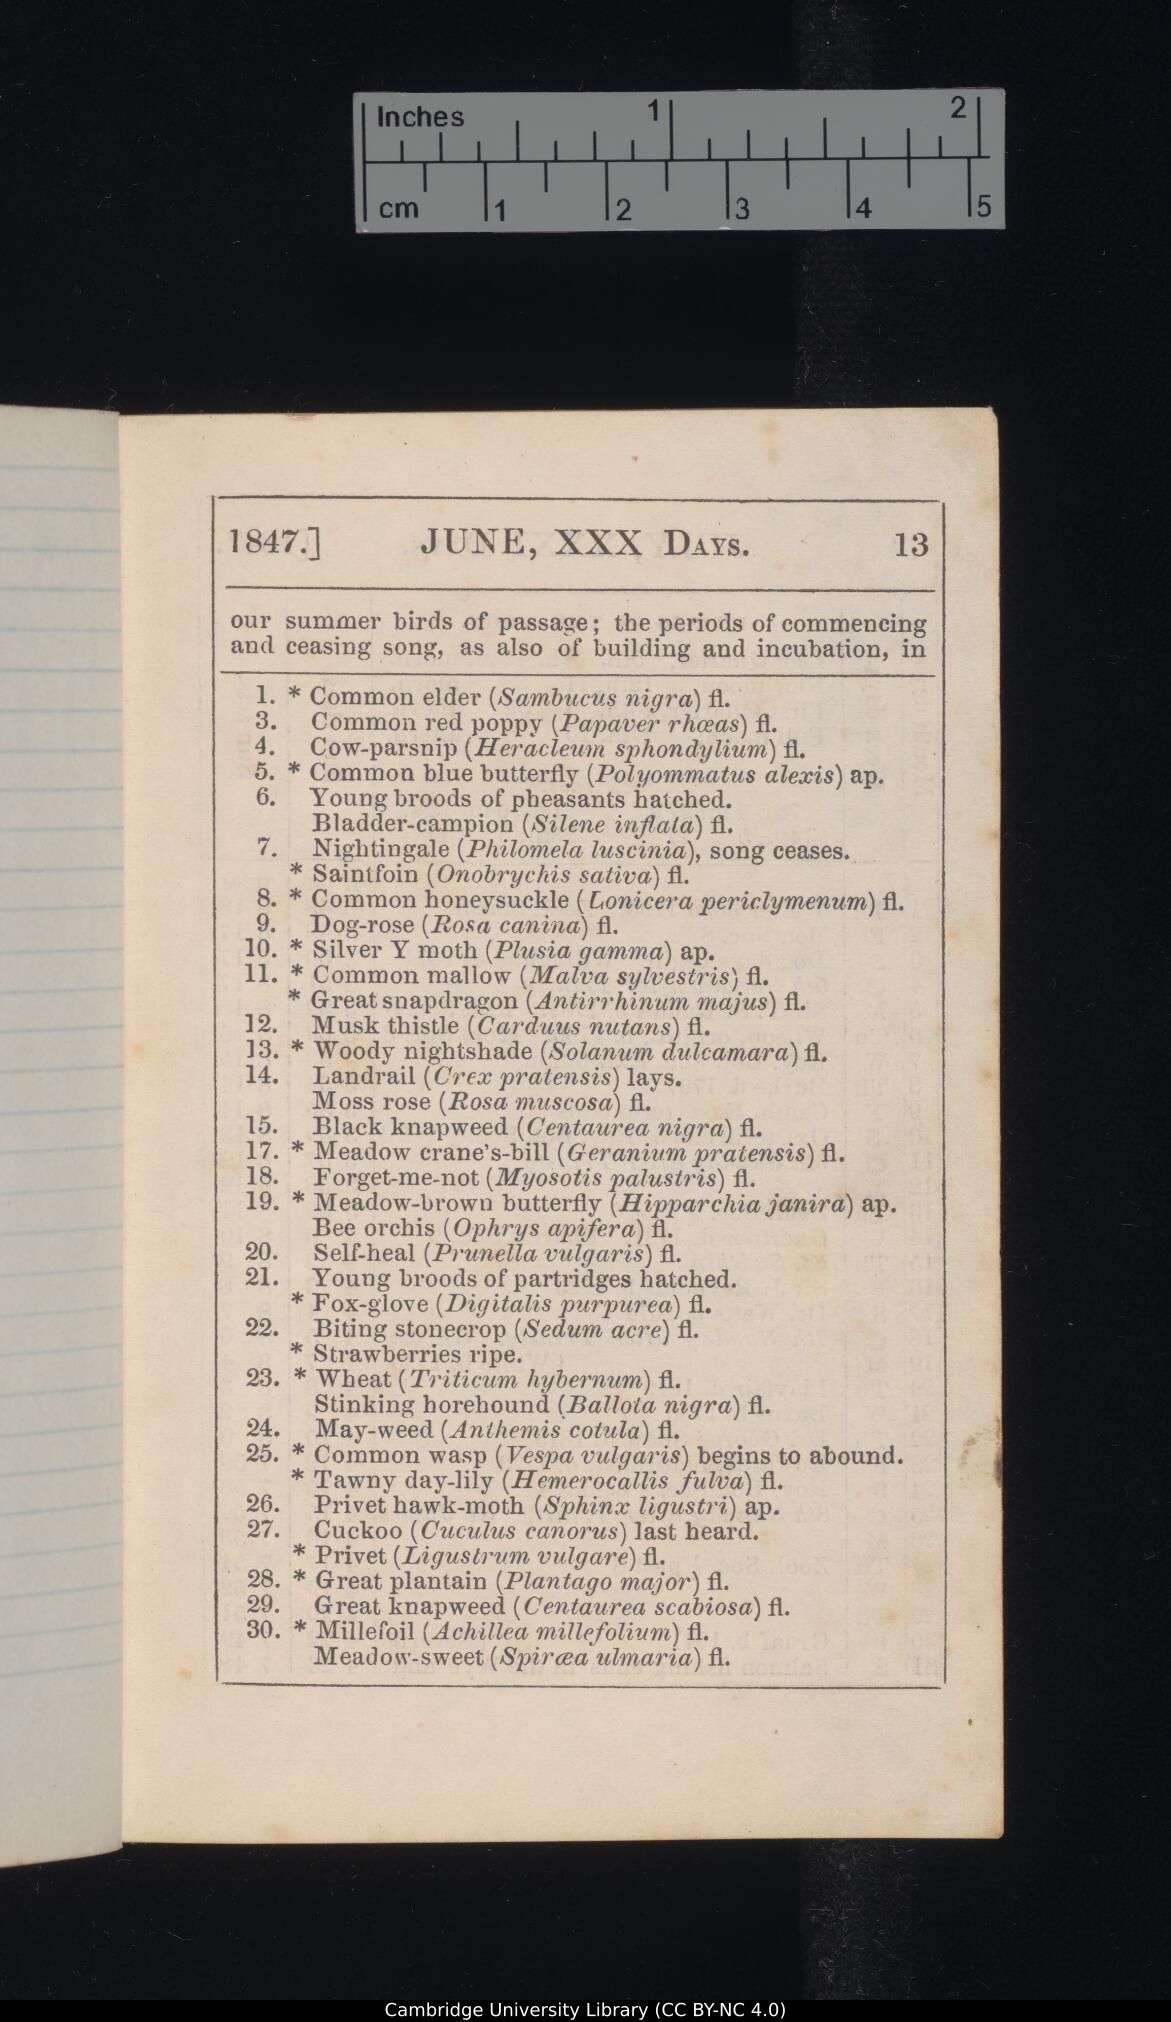 Inches 1 2
cm 1 2 3 4 5
1847.] JUNE, XXX DAYS. 13
our summer birds of passage; the periods of commencing
and ceasing song, as also of building and incubation, in
1. * Common elder (Sambucus nigra) fl.
3. Common red poppy (Papaver rhœas) fl.
4. Cow-parsnip (Heracleum sphondylium) fl.
5. * Common blue butterfly (Polyommatus alexis) ap.
6. Young broods of pheasants hatched.
Bladder-campion (Silene inflata) fl.
7. Nightingale (Philomela luscinia), song ceases.
* Saintfoin (Onobrychis sativa) fl.
8. * Common honeysuckle (Lonicera periclymenum) fl.
9. Dog-rose (Rosa canina) fl.
10. * Silver Y moth (Plusia gamma) ap.
11. * Common mallow (Malva sylvestris) fl.
* Great snapdragon (Antirrhinum majus) fl.
12. Musk thistle (Carduus nutans) fl.
13. * Woody nightshade (Solanum dulcamara) fl.
14. Landrail (Crex pratensis) lays.
Moss rose (Rosa muscosa) fl.
15. Black knapweed (Centaurea nigra) fl.
17. * Meadow crane's-bill (Geranium pratensis) fl.
18. Forget-me-not (Myosotis palustris) fl.
19. * Meadow-brown butterfly (Hipparchia janira) ap.
Bee orchis (Ophrys apifera) fl.
20. Self-heal (Prunella vulgaris) fl.
21. Young broods of partridges hatched.
* Fox-glove (Digitalis purpurea) fl.
22. Biting stonecrop (Sedum acre) fl.
* Strawberries ripe.
23. * Wheat (Triticum hybernum) fl.
Stinking horehound (Ballota nigra) fl.
24. May-weed (Anthemis cotula) fl.
25. * Common wasp (Vespa vulgaris) begins to abound.
* Tawny day-lily (Hemerocallis fulva) fl.
26. Privet hawk-moth (Sphinx ligustri) ap.
27. Cuckoo (Cuculus canorus) last heard.
* Privet (Ligustrum vulgare) fl.
28. * Great plantain (Plantago major) fl.
29. Great knapweed (Centaurea scabiosa) fl.
30. * Millefoil (Achillea millefolium) fl.
Meadow-sweet (Spiræa ulmaria) fl.
Cambridge University Library (CC BY-NC 4.0)